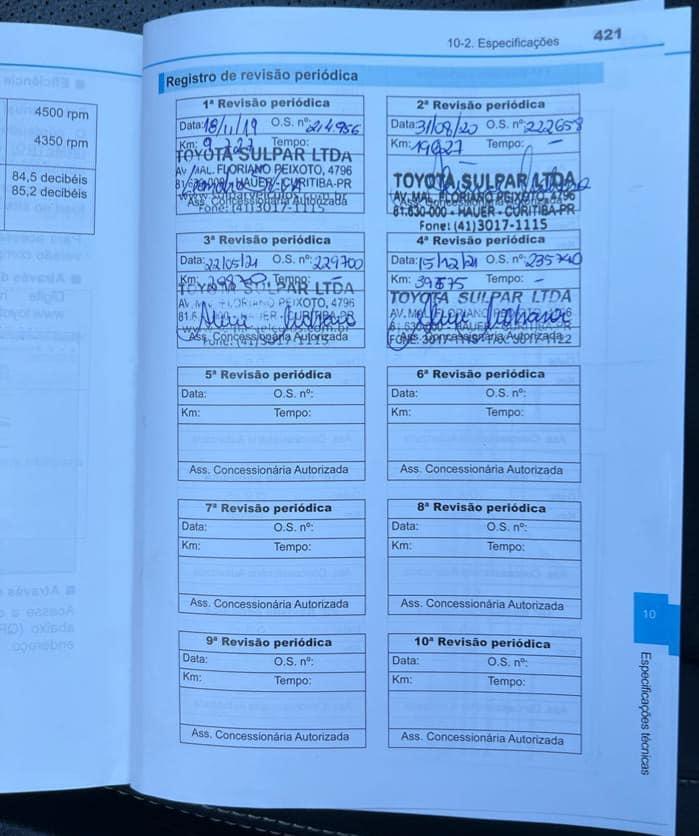 10-2. Especificações 421
Registro de revisão periódica
4500 rpm
4350 rpm
84,5 decibéis
85,2 decibéis
1ª Revisão periódica
Data: 18/11/19 O.S. nº: 214.956
Km: 9 727 Tempo:
TOYOTA SULPAR LTDA
AV. MAL. FLORIANO PEIXOTO, 4796
HAUER - CURITIBA-PR
Ass. Concessionária Autorizada
Fone: (41)3017-1115
2ª Revisão periódica
Data: 31/08/20 O.S. nº: 222658
Km: 19827 Tempo: -
TOYOTA SULPAR LTDA
AV. MAL. FLORIANO PEIXOTO, 4796
81.630-000 - HAUER - CURITIBA-PR
Fone: (41)3017-1115
3ª Revisão periódica
Data: 22/05/21 O.S. nº: 229700
Km: Tempo: -
TOYOTA SULPAR LTDA
AV. MAL. FLORIANO PEIXOTO, 4796
CURITIBA-PR
Ass. Concessionária Autorizada
Fone: (41)3017-1115
4ª Revisão periódica
Data: 15/12/21 O.S. nº: 235740
Km: 39875 Tempo: -
TOYOTA SULPAR LTDA
AV. MAL. FLORIANO
Ass. Concessionária Autorizada
5ª Revisão periódica
Data: O.S. nº:
Km: Tempo:
Ass. Concessionária Autorizada
6ª Revisão periódica
Data: O.S. nº:
Km: Tempo:
Ass. Concessionária Autorizada
7ª Revisão periódica
Data: O.S. nº:
Km: Tempo:
Ass. Concessionária Autorizada
8ª Revisão periódica
Data: O.S. nº:
Km: Tempo:
Ass. Concessionária Autorizada
9ª Revisão periódica
Data: O.S. nº:
Km: Tempo:
Ass. Concessionária Autorizada
10ª Revisão periódica
Data: O.S. nº:
Km: Tempo:
Ass. Concessionária Autorizada
10
Especificações técnicas